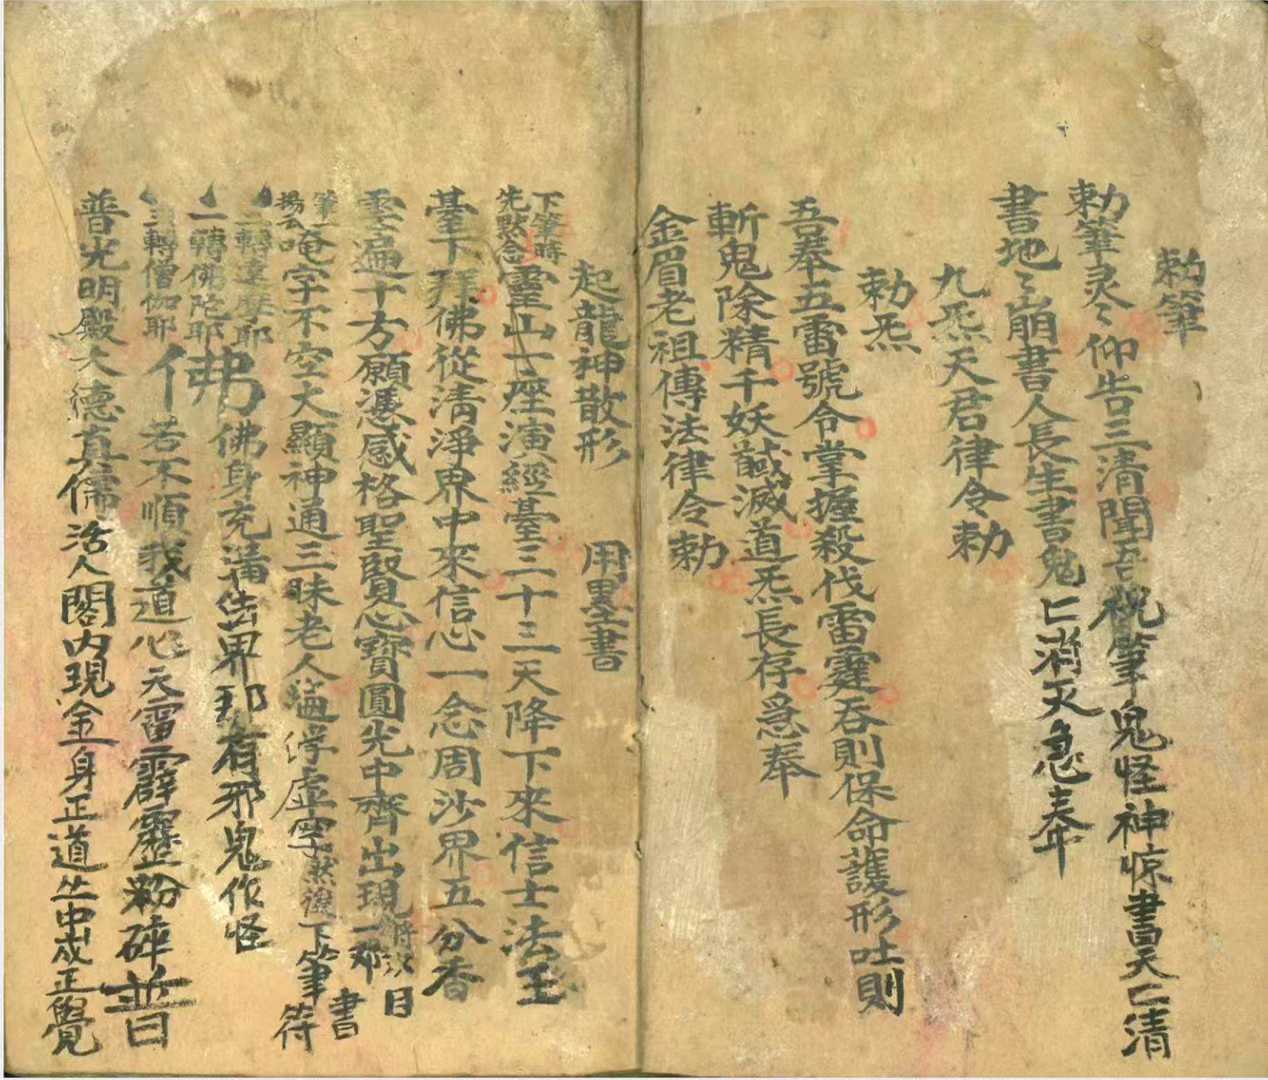 勅筆
勅筆灵〻仰告三清聞吾祝筆鬼怪神惊書天匕清
書地〻崩書人長生書鬼匕消灭急奉
九炁天君律令勅
勅炁
吾奉五雷號令掌握殺伐雷霆吞則保命護形吐則
斬鬼除精千妖馘滅道炁長存急奉
金眉老祖傳法律令勅
起龍神散形 用墨書
下筆時先默念靈山一座演經臺三十三天降下來信士法玉
臺下拜佛從清淨界中來信心一念周沙界五分香
雲遍十方願憑感格聖賢心寶圓光中齊出現
筆唵字不空大顯神通三昧老人 浮虛字然後下筆書符
二轉達摩耶
一轉佛陀耶 佛 佛身充滿法界那有邪鬼作怪
三轉僧伽耶 若不順我道心元雷霹靂粉碎普曰
普光明殿大德真儒活人閣內現金身正道丛中成正覺